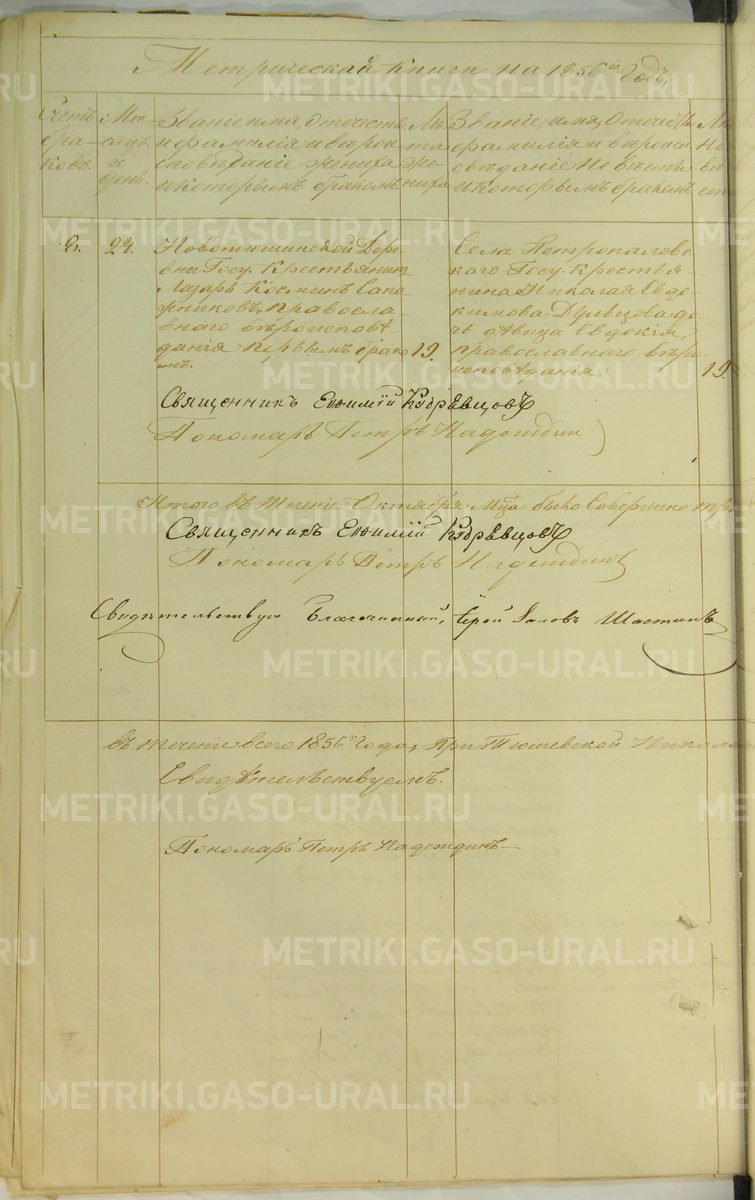 Метрической книги на 1856й Годъ,
Счетъ браковъ.
Мѣсяцъ и день.
Званіе, имя, отечество,
и фамилія и вѣрои
сповѣданіе жениха
и которымъ бракомъ.
Лѣта жениха
Званіе, имя, Отечество
фамилія и вѣроиспо
вѣданіе Невѣсты
и которымъ бракомъ.
Лѣ
Не
вѣ
сты
24.
Новотишинской Дере
вни Госу. Крестьянинъ
Лазарь Косминъ Сапо
жниковъ, Правосла
внаго вѣроисповѣ
данія первымъ брако
мъ.
19.
Села Петропаловс
каго Госу. Крестья
нина Николая Евдо
кимова Дульцова до
чь дѣвица Евдокія,
православнаго вѣро
исповѣданія
19.
Священникъ Евѳимій Кудрявцовъ
Пономарь Петръ Надеждин
Итого въ теченіе Октября Мца было Совершено
Священникъ Евѳимій Кудрявцовъ
Пономарь Петръ Надеждинъ
Свидѣтельствуи Благочинный, Іерей Шастинъ
въ теченіе всего 1856го Года, При Тюшевской Николаев
Свидѣтельствуемъ.
Пономарь Петръ Надеждинъ
METRIKI.GASO-URAL.RU